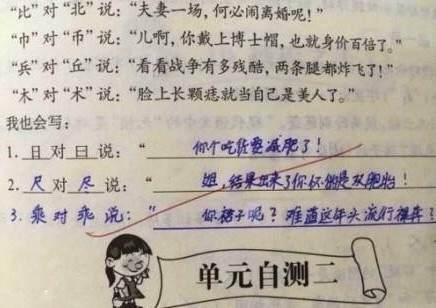 “比”对“北”说：“夫妻一场，何必闹离婚呢！”
“巾”对“币”说：“儿啊，你戴上博士帽，也就身价百倍了。”
“兵”对“丘”说：“看看战争有多残酷，两条腿都炸飞了！”
“木”对“术”说：“脸上长颗痣就当自己是美人了。”
我也会写：
1. 日 对 曰 说：“你个吃货要减肥了！
2. 尺 对 尽 说：“姐，结果出来了你怀的是双胞胎！
3. 乘 对 乖 说：“你裤子呢？难道这年头流行裸奔？
单元自测二